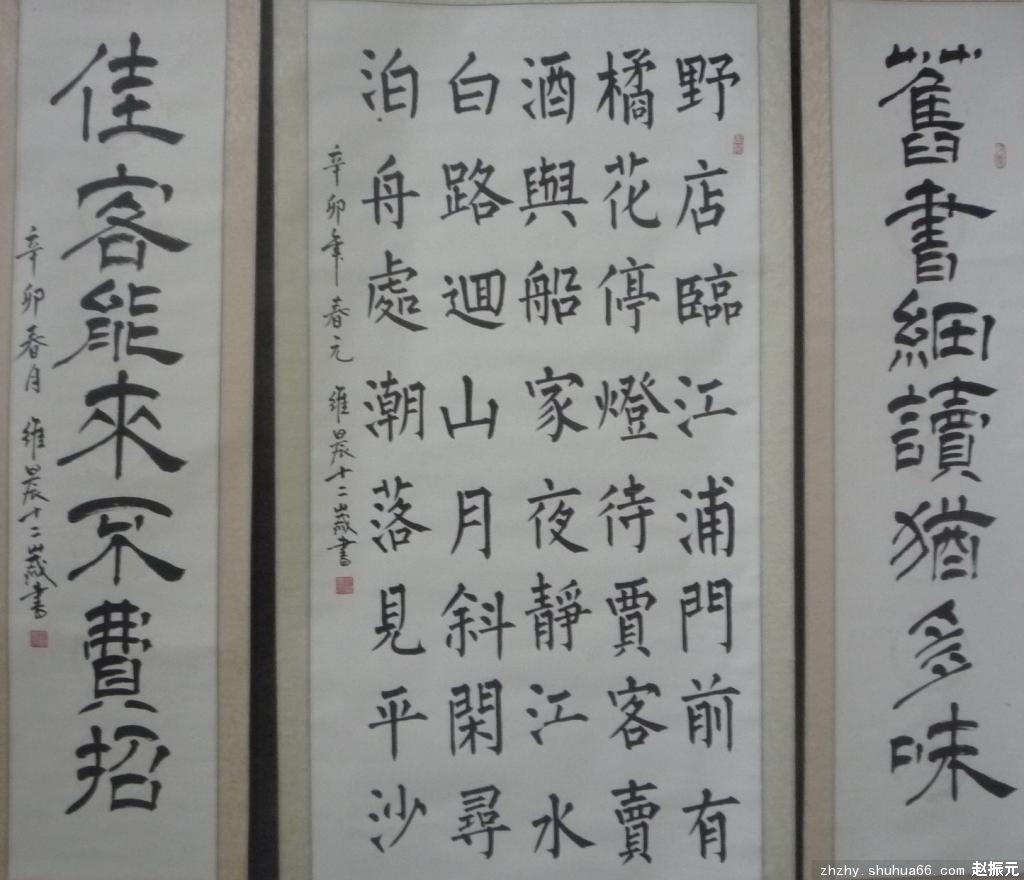 舊書細讀猶多味
野店臨江浦門前有
橘花停燈待賈客賣
酒與船家夜靜江水
白路迴山月斜閑尋
泊舟處潮落見平沙
辛卯年春元 維晨十二歲書
佳客能來不費招
辛卯春月 維晨十二歲書
zhzhy.shuhua66.com 赵振元